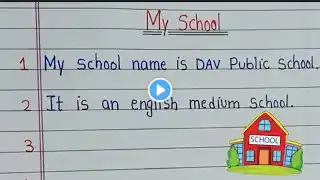 My School
1 My School name is DAV Public School.
2 It is an english medium School.
3
SCHOOL